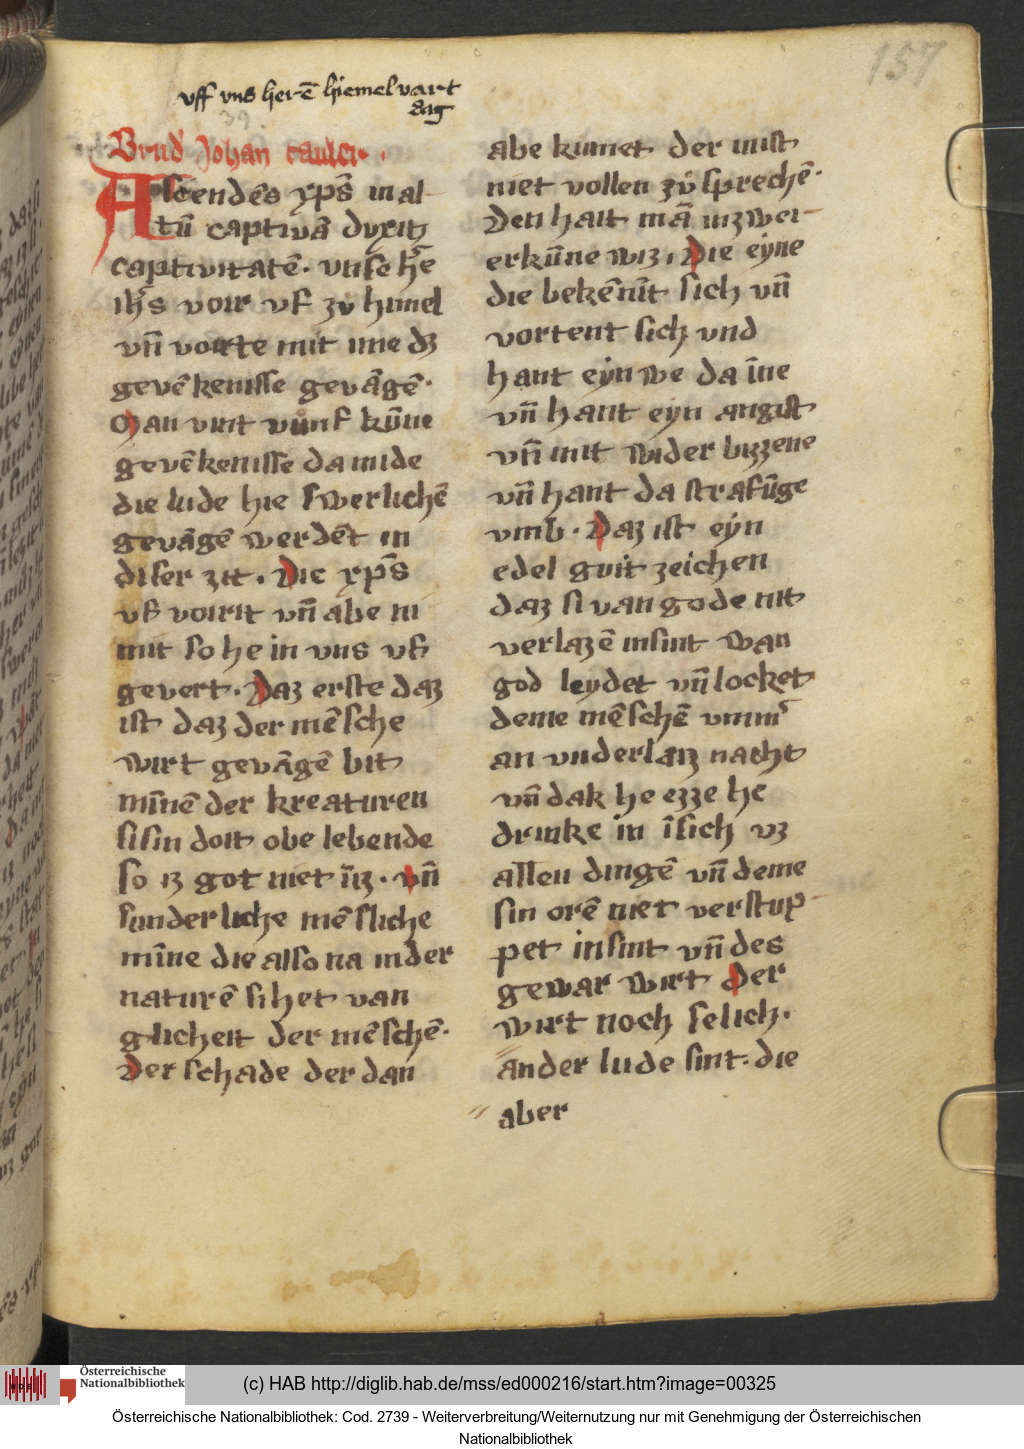 157
vff vns herē hiemelvart
dag
39
Brud' Johan tauler.
Ascendēs xp̄s in al
tū captiuā duxit
captiuitatē. vnse h̄re
ih̄s voir vf zv himel
vn̄ vorte mit ime dz
gevēkenisse gevāgē.
Man vint vúnf kūne
gevēkenisse da mide
die lude hie swerlichē
gevāgē werdēt in
diser zit. Die xp̄s
vf voirit vn̄ abe ni
mit so he in vns vf
gevert. Daz erste daz
ist daz der mēsche
wirt gevāgē bit
minnē der kreaturen
si sin doit obe lebende
so iz got niet īiz. vn̄
sunderliche mēsliche
mīne die also na in der
naturē sihet van
glicheit der mēschē.
Der schade der dan
abe kumet der inist
niet vollen zv̊ sprechē.
Den hait mā in zwei
erkūne wiz. Die eyne
die bekēnīt sich vn̄
vortent sich vnd
hant eyn we da īne
vn̄ hant eyn angist
vn̄ mit wider bizzene
vn̄ hant da strafūge
vmb. Daz ist eyn
edel guit zeichen
daz si van gode nit
verlazē insint wan
god leydet vn̄ locket
deme mēschē vmm'
an vnderlaiz nacht
vn̄ dak he ezze he
drinke in īsich vz
allen dingē vn̄ deme
sin orē niet verstup
pet insint vn̄ des
gewar wirt der
wirt noch selich.
ander lude sint. die
aber
Österreichische
Nationalbibliothek
(c) HAB http://diglib.hab.de/mss/ed000216/start.htm?image=00325
Österreichische Nationalbibliothek: Cod. 2739 - Weiterverbreitung/Weiternutzung nur mit Genehmigung der Österreichischen
Nationalbibliothek